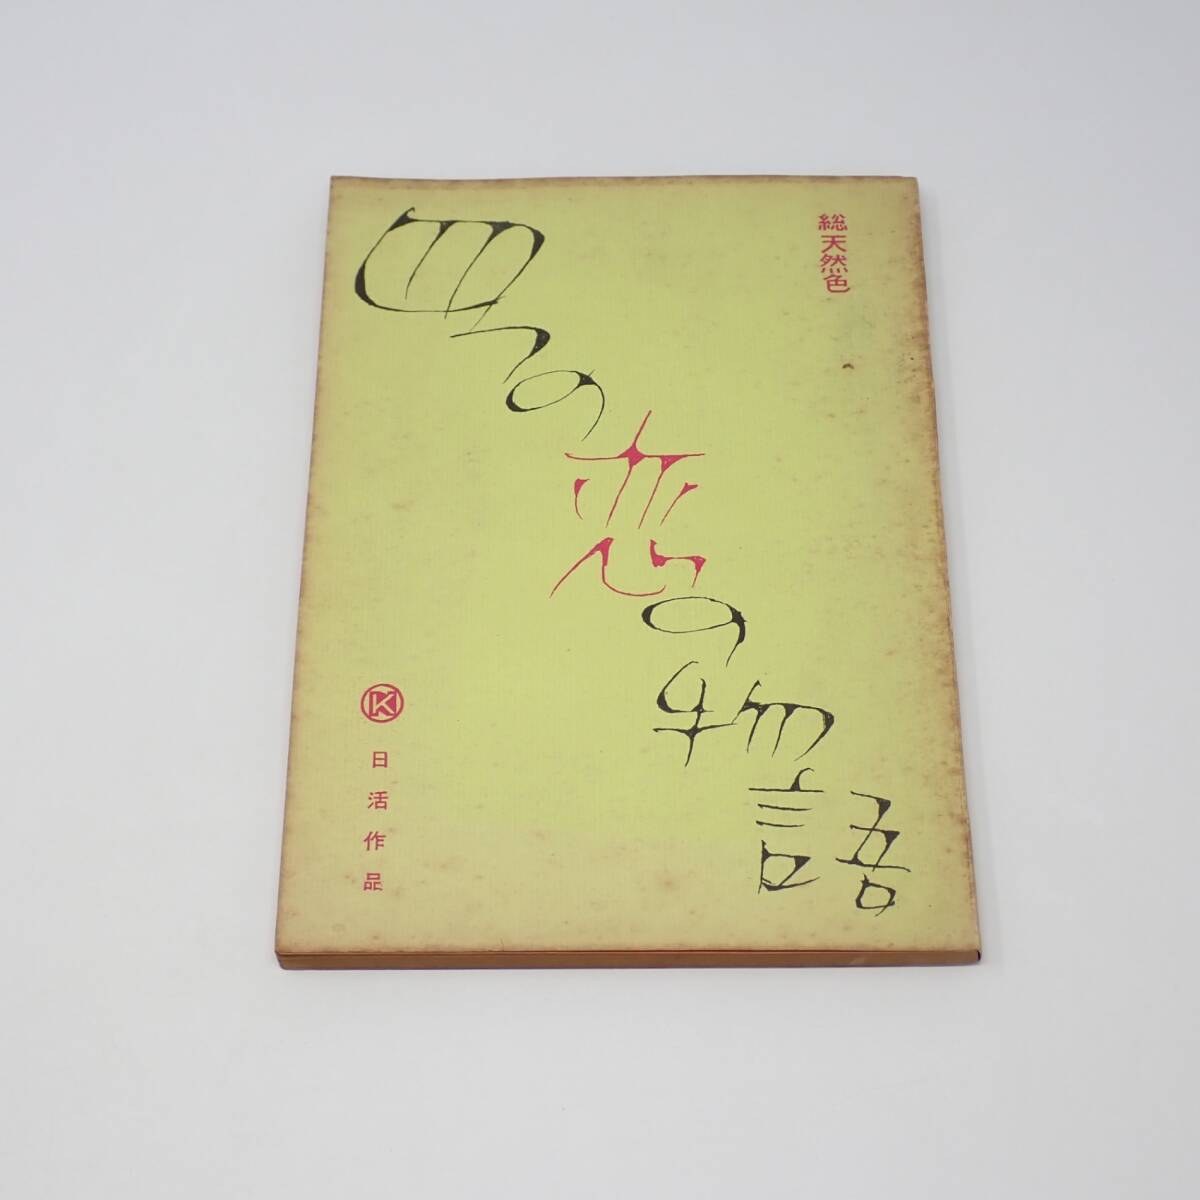 総天然色
四つの恋の物語
K
日活作品